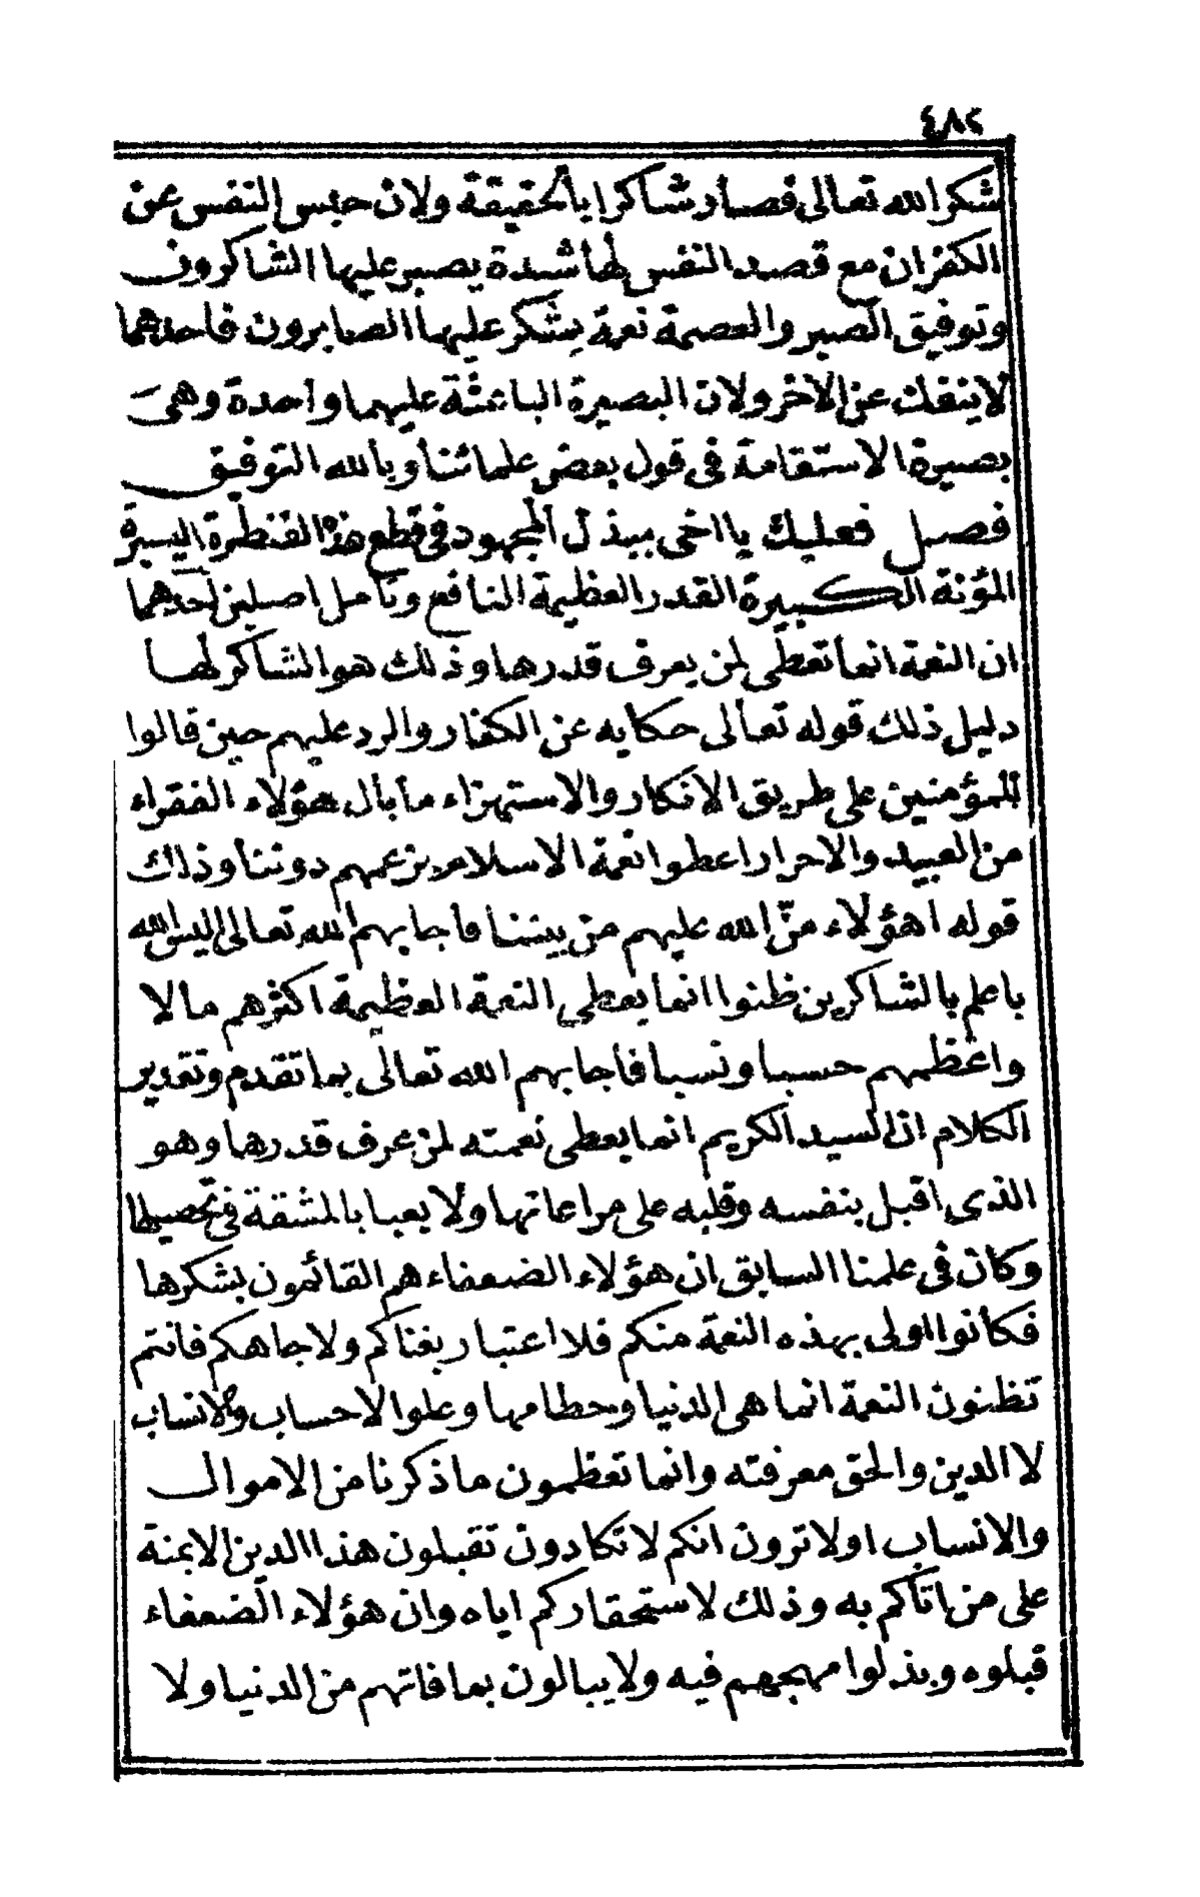 ٤٨٢
شكر الله تعالى فصار شاكرا بالحقيقة ولان حبس النفس عن
الكفران مع قصد النفس لها شدة يصبر عليها الشاكرون
وتوفيق الصبر والعصمة نعمة يشكر عليها الصابرون فاحدهما
لا ينفك عن الاخر ولان البصيرة الباعثة عليهما واحدة وهى
بصيرة الاستقامة فى قول بعض علمائنا وبالله التوفيق
فصل فعليك يا اخى ببذل المجهود فى قطع هذه القنطرة اليسيرة
المؤنة الكبيرة القدر العظيمة النافع وتأمل اصلين احدهما
ان النعمة انما تعطى لمن يعرف قدرها وذلك هو الشاكر لها
دليل ذلك قوله تعالى حكايه عن الكفار والرد عليهم حين قالوا
للمؤمنين على طريق الانكار والاستهزاء ما بال هؤلاء الفقراء
من العبيد والاحرار اعطوا نعمة الاسلام بزعمهم دوننا وذلك
قوله اهؤلاء منّ الله عليهم من بيننا فاجابهم الله تعالى اليس الله
باعلم بالشاكرين ظنوا انما يعطى النعمة العظيمة اكثرهم مالا
واعظمهم حسبا ونسبا فاجابهم الله تعالى بما تقدم وتقدير
الكلام ان السيد الكريم انما يعطى نعمته لمن عرف قدرها وهو
الذى اقبل بنفسه وقلبه على مراعاتها ولا يعبا بالمشقة فى تحصيلها
وكان فى علمنا السابق ان هؤلاء الضعفاء هم القائمون بشكرها
فكانوا اولى بهذه النعمة منكم فلا اعتبار بغناكم ولا جاهكم فانتم
تظنون النعمة انما هى الدنيا وحطامها وعلوا الاحساب والانساب
لا الدين والحق معرفته وانما تعظمون ما ذكرنا من الاموال
والانساب اولا ترون انكم لا تكادون تقبلون هذا الدين الا بمنة
على من اتاكم به وذلك لاستحقاركم اياه وان هؤلاء الضعفاء
قبلوه وبذلوا مهجهم فيه ولا يبالون بما فاتهم من الدنيا ولا